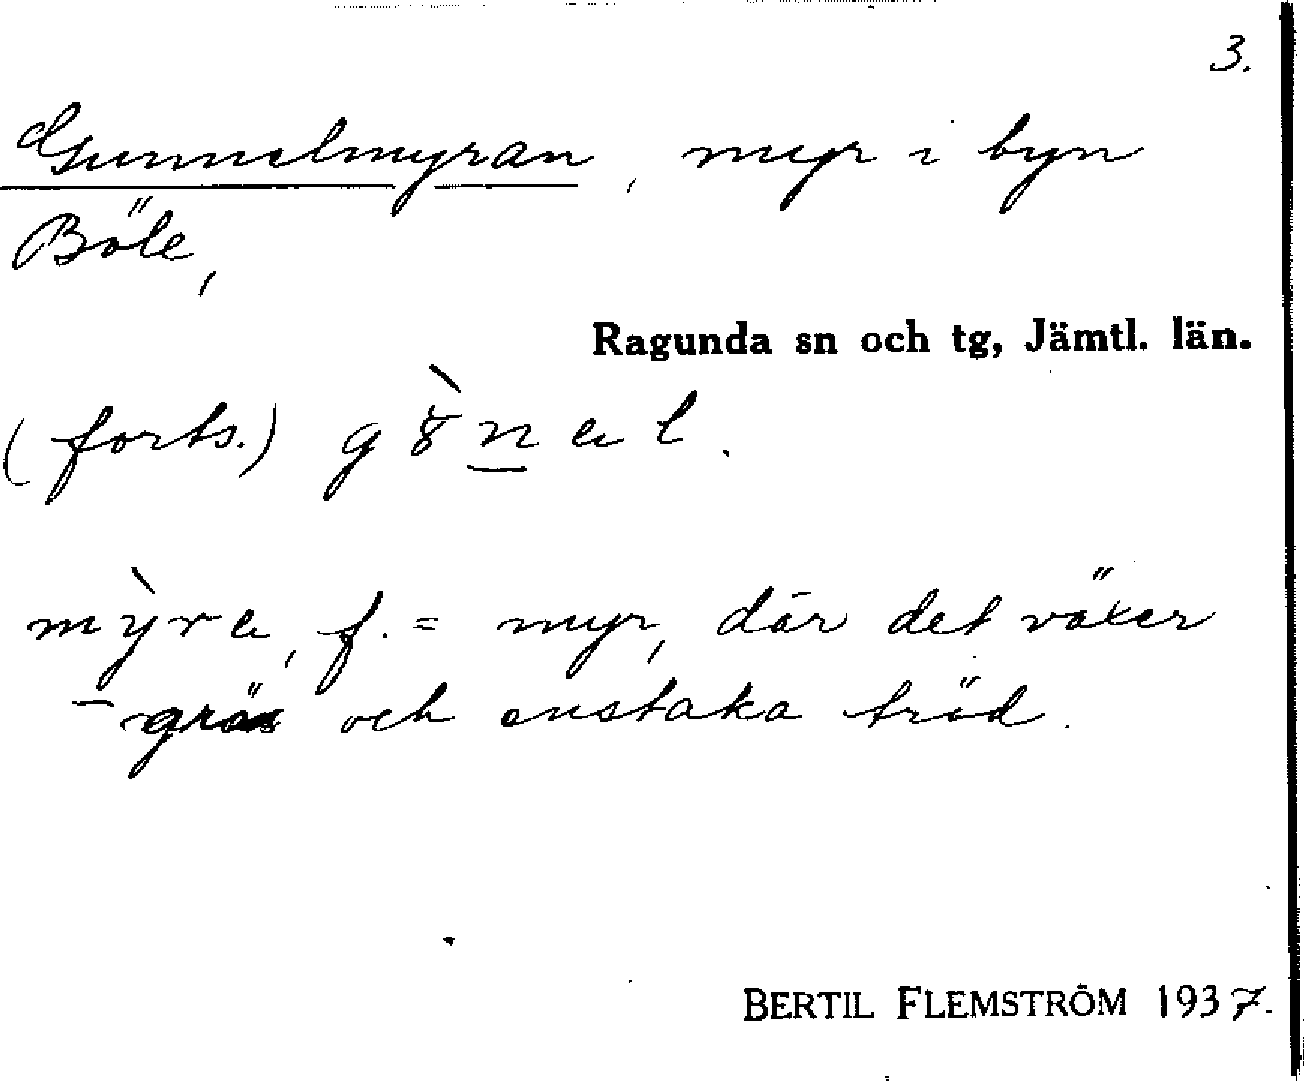 3.
Gunnelmyran, myr i byn
Böle,
Ragunda sn och tg, Jämtl. län.
(forts.)
f. = myr, där det växer
gräs och enstaka träd.
BERTIL FLEMSTRÖM 1937.